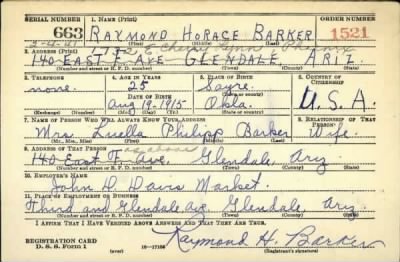 SERIAL NUMBER 1. NAME (Print) ORDER NUMBER
663 RAYMOND HORACE BARKER 1521
(First) (Middle) (Last)
2. ADDRESS (Print)
140 EAST F. AVE GLENDALE, ARIZ.
(Number and street or R. F. D. number) (Town) (County) (State)
3. TELEPHONE 4. AGE IN YEARS 5. PLACE OF BIRTH 6. COUNTRY OF CITIZENSHIP
none. 25 Sayre,
DATE OF BIRTH (Town or county)
Aug 19-1915 Okla. U.S.A.
(Exchange) (Number) (Mo.) (Day) (Yr.) (State or country)
7. NAME OF PERSON WHO WILL ALWAYS KNOW YOUR ADDRESS 8. RELATIONSHIP OF THAT PERSON
Mrs Luella Philipp Barker Wife.
(Mr., Mrs., Miss) (First) (Middle) (Last)
9. ADDRESS OF THAT PERSON
140 East F. Ave. Glendale, Ariz
(Number and street or R. F. D. number) (Town) (County) (State)
10. EMPLOYER'S NAME
John D Davis Market.
11. PLACE OF EMPLOYMENT OR BUSINESS
Third and Glendale Ave. Glendale, Ariz.
(Number and street or R. F. D. number) (Town) (County) (State)
I AFFIRM THAT I HAVE VERIFIED ABOVE ANSWERS AND THAT THEY ARE TRUE.
REGISTRATION CARD
D. S. S. Form 1 (over) 16-17105 Raymond H. Barker
(Registrant's signature)